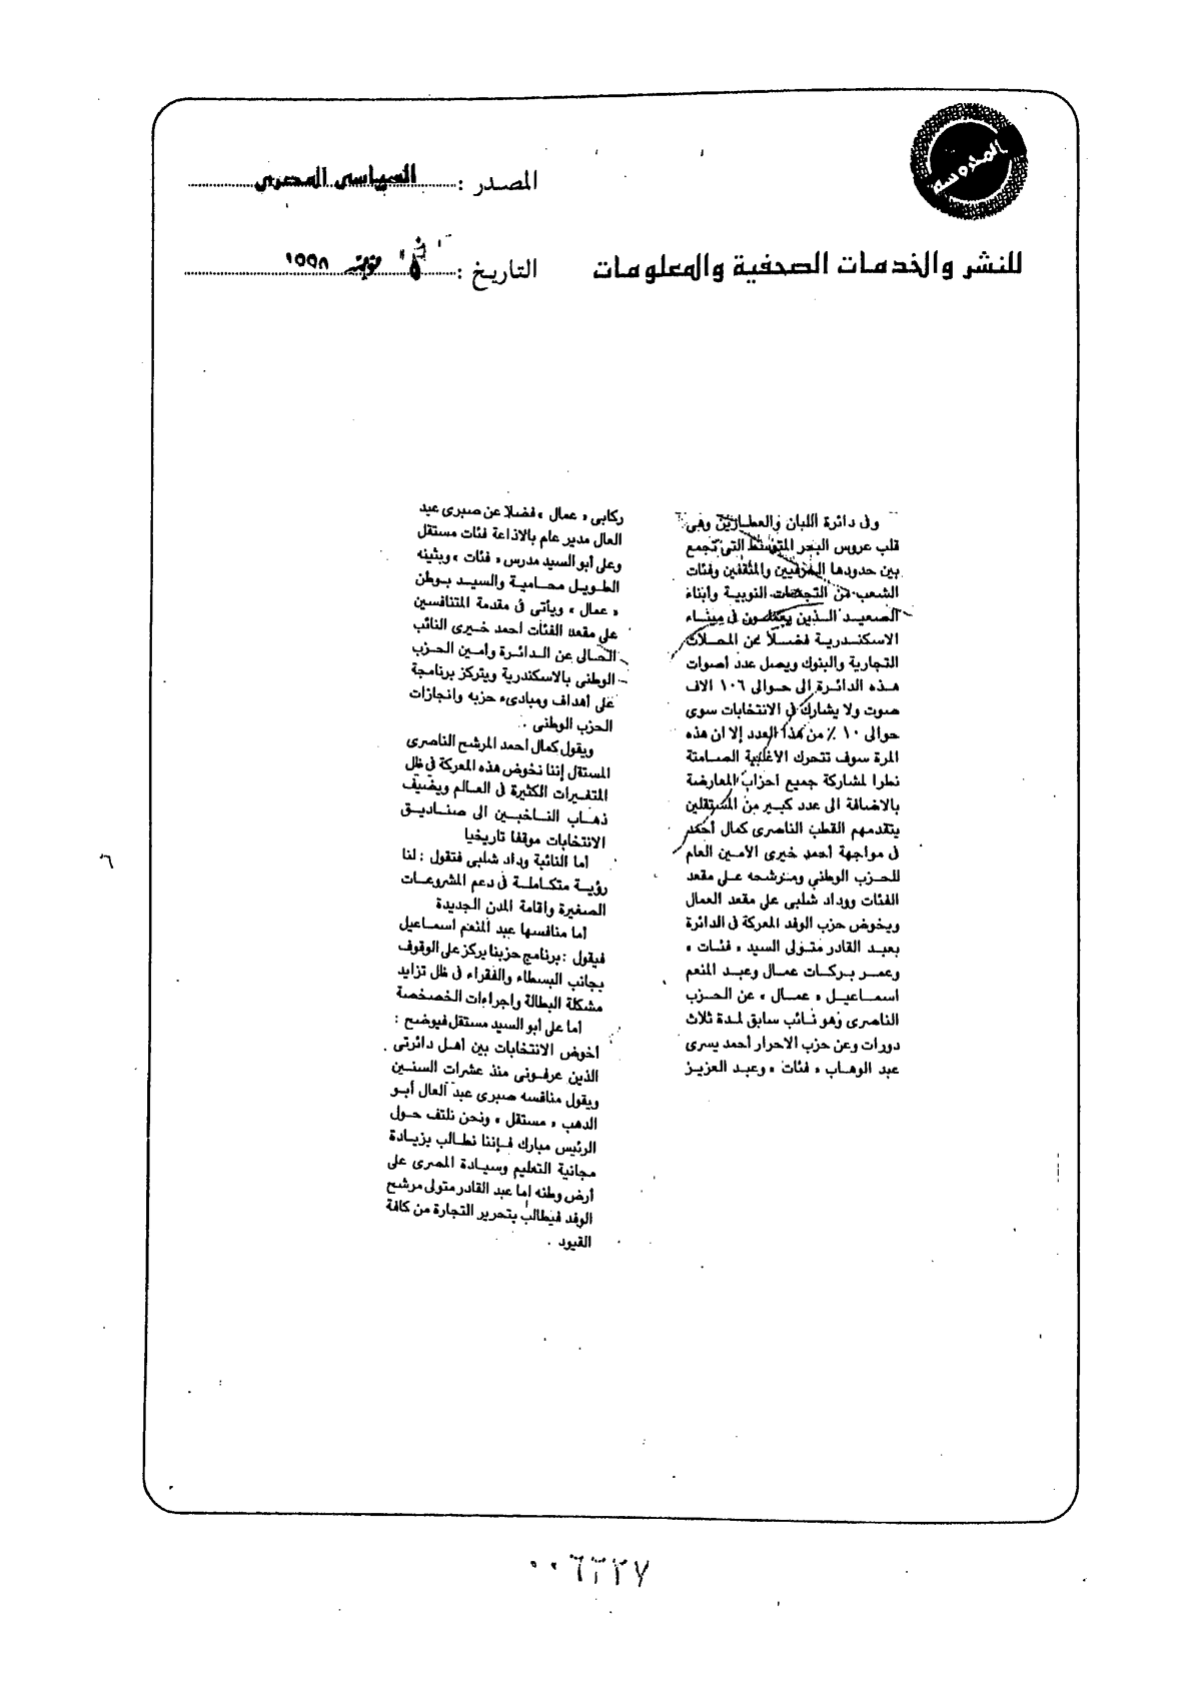 المدروسة
المصدر : السياسى المصرى
للنشر والخدمات الصحفية والمعلومات
التاريخ : ١٥ نوفمبر
وفى دائرة اللبان والعطارين وهى
قلب عروس البحر المتوسط التى تجمع
بين حدودها الحرفيين والمثقفين وفئات
الشعب من التجمعات النوبية وأبناء
الصعيد الذين يعملون فى ميناء
الاسكندرية فضلاً عن المحلات
التجارية والبنوك ويصل عدد أصوات
هذه الدائرة الى حوالى ١٠٦ الاف
صوت ولا يشارك فى الانتخابات سوى
حوالى ١٠ ٪ من هذا العدد إلا ان هذه
المرة سوف تتحرك الاغلبية الصامتة
نظرا لمشاركة جميع أحزاب المعارضة
بالاضافة الى عدد كبير من المستقلين
يتقدمهم القطب الناصرى كمال أحمد
فى مواجهة أحمد خيرى الأمين العام
للحزب الوطني ومرشحه على مقعد
الفئات ووداد شلبى على مقعد العمال
ويخوض حزب الوفد المعركة فى الدائرة
بعبد القادر متولى السيد « فئات »
وعمر بركات عمال وعبد المنعم
اسماعيل « عمال » عن الحزب
الناصرى وهو نائب سابق لمدة ثلاث
دورات وعن حزب الاحرار أحمد يسرى
عبد الوهاب « فئات » وعبد العزيز
ركابى « عمال » فضلا عن صبرى عبد
العال مدير عام بالاذاعة فئات مستقل
وعلى أبو السيد مدرس « فئات » وبثينه
الطويل محامية والسيد بوطن
« عمال » ويأتى فى مقدمة المتنافسين
على مقعد الفئات أحمد خيرى النائب
الحالى عن الدائرة وأمين الحزب
الوطنى بالاسكندرية ويتركز برنامجة
على أهداف ومبادىء حزبه وانجازات
الحزب الوطنى .
ويقول كمال احمد المرشح الناصرى
المستقل إننا نخوض هذه المعركة فى ظل
المتغيرات الكثيرة فى العالم ويضيف
ذهاب الناخبين الى صناديق
الانتخابات موقفا تاريخيا
أما النائبة وداد شلبى فتقول : لنا
رؤية متكاملة فى دعم المشروعات
الصغيرة واقامة المدن الجديدة
أما منافسها عبد المنعم اسماعيل
فيقول : برنامج حزبنا يركز على الوقوف
بجانب البسطاء والفقراء فى ظل تزايد
مشكلة البطالة واجراءات الخصخصة
أما على أبو السيد مستقل فيوضح :
أخوض الانتخابات بين أهل دائرتى
الذين عرفونى منذ عشرات السنين
ويقول منافسه صبرى عبد العال أبو
الدهب « مستقل » ونحن نلتف حول
الرئيس مبارك فإننا نطالب بزيادة
مجانية التعليم وسيادة المصرى على
أرض وطنه اما عبد القادر متولى مرشح
الوفد فيطالب بتحرير التجارة من كافة
القيود .